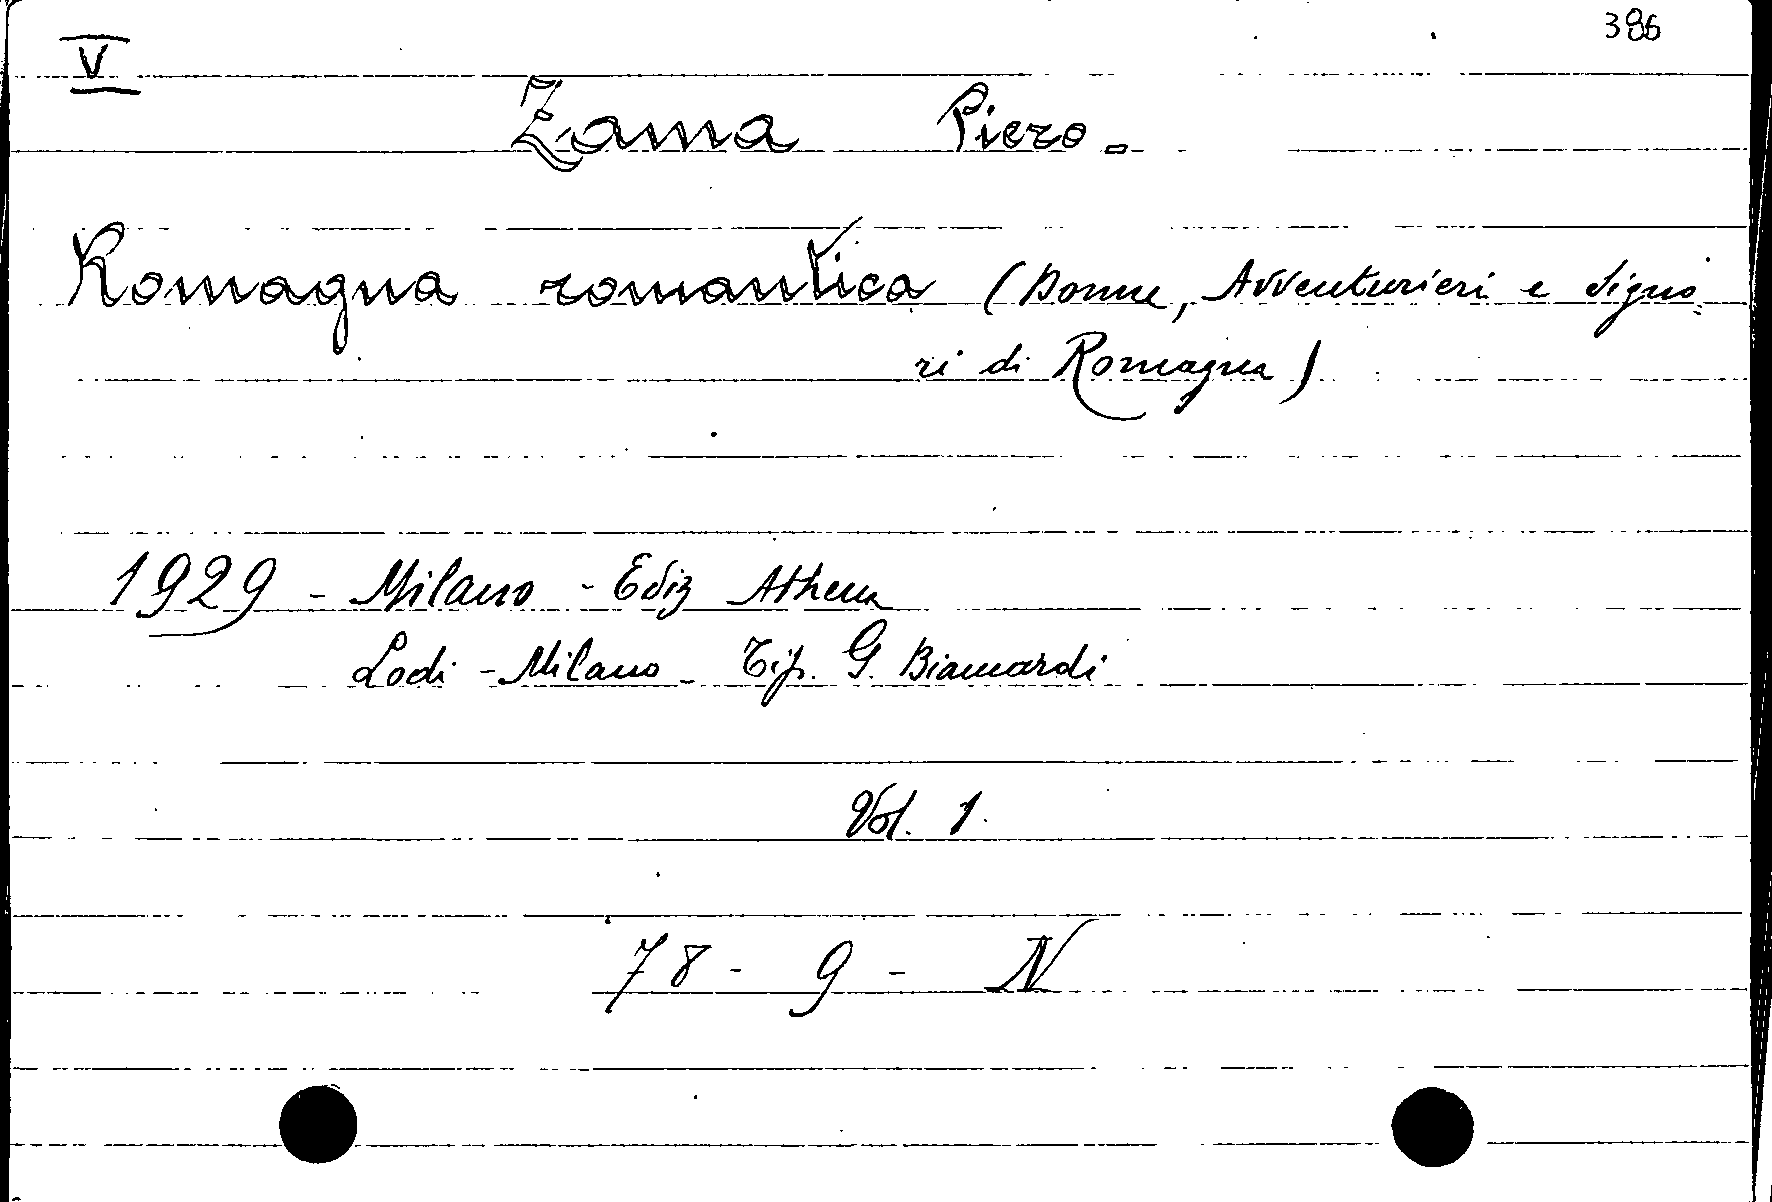 386
V
Zama Piero.
Romagna romantica (Donne, Avventurieri e Signo-
ri di Romagna)
1929 - Milano - Ediz Athena
Lodi - Milano - Tip. G. Biancardi
Vol. 1.
78 - 9 - N